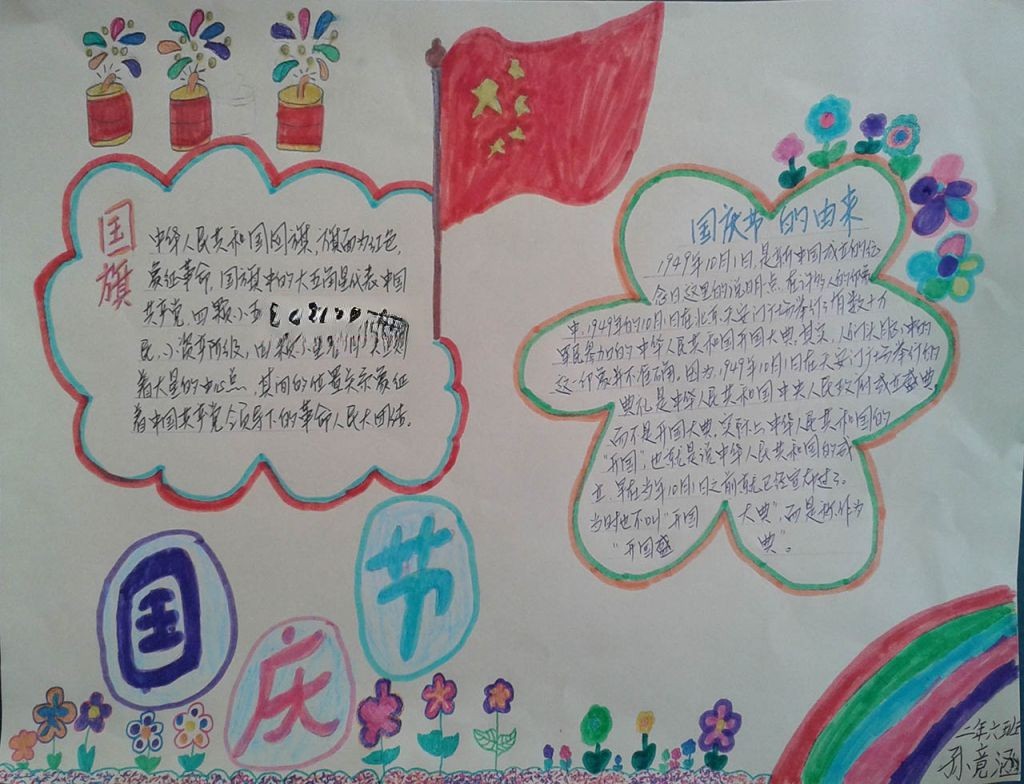 国旗
中华人民共和国国旗,旗面为红色,
象征革命,国旗中的大五角星代表中国
共产党,四颗小五
民,小资产阶级,四颗小星
着大星的中心点,其间的位置关系象征
着中国共产党领导下的革命人民大团结。
国庆节的由来
1949年10月1日,是新中国成立的纪
念日这里的说明点,在许多人的印象
中,1949年的10月1日在北京天安门广场举行了有数十万
军民参加的中华人民共和国开国大典,其实,人们头脑中的
这一印象并不准确。因为,1949年10月1日在天安门广场举行的
典礼是中华人民共和国中央人民政府成立盛典,
而不是开国大典,实际上,中华人民共和国的
“开国”,也就是说中华人民共和国的成
立,早在当年10月1日之前就已经宣布过了。
当时也不叫“开国大典”,而是称作为
“开国盛典”。
国庆节
二年六班
孙竟涵